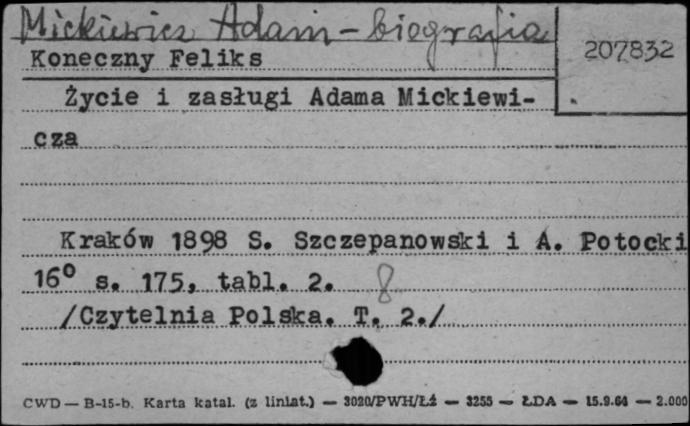 Mickiewicz Adam - biografia
207832
Koneczny Feliks
Życie i zasługi Adama Mickiewi-
cza
Kraków 1898 S. Szczepanowski i A. Potocki
16° s. 175, tabl. 2. 8
/Czytelnia Polska. T. 2./
CWD — B-15-b. Karta katal. (z liniat.) — 3020/PWH/Łź — 3255 — ŁDA — 15.9.64 — 2.000